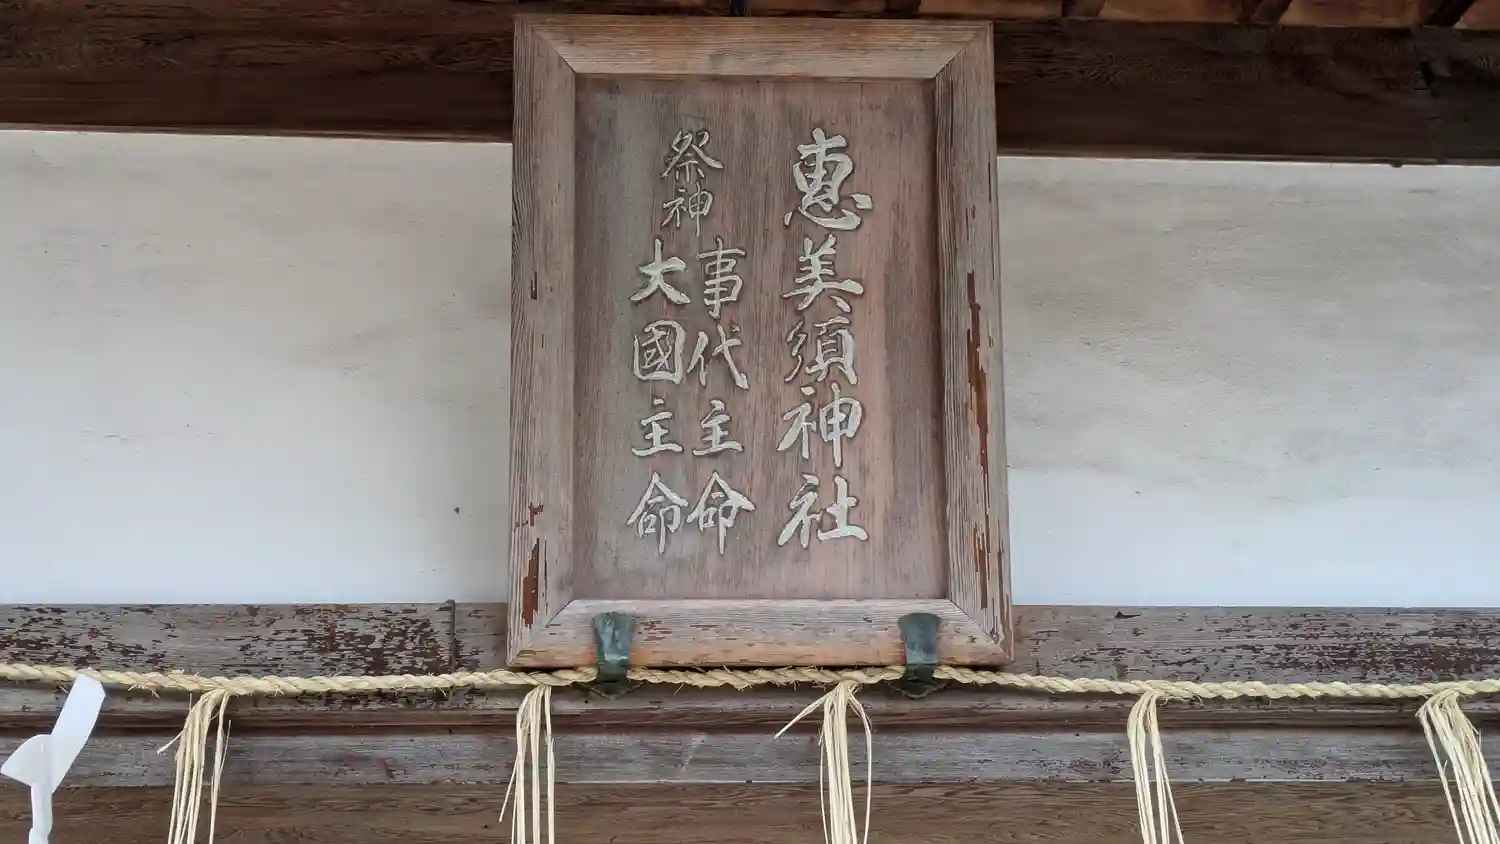 惠美須神社
祭神
事代主命
大國主命